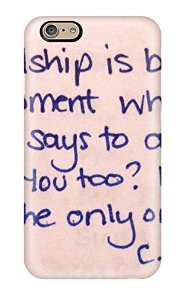 dship is b
oment wh
says to a
You too?
he only o
C.